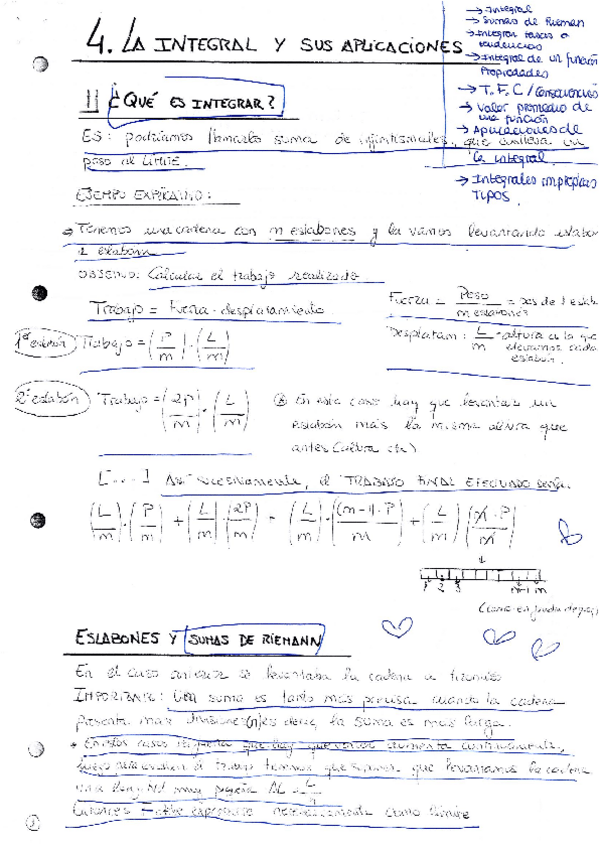 → Integral
→ Sumas de Rieman
→ Integrar tasas o
tendencias
→ Integral de un función
Propiedades
→ T.F.C / Consecuencias
→ Valor promedio de
una función
→ Aplicaciones de
la integral
→ Integrales impropias
TIPOS.
4. LA INTEGRAL Y SUS APLICACIONES
1) ¿QUÉ ES INTEGRAR?
ES: podríamos llamarlo suma de infinitesimales, que conlleva un
paso al LÍMITE.
EJEMPLO EXPLICATIVO:
→ Tenemos una cadena con m eslabones y la vamos levantando eslabon
a eslabon
OBJETIVO: Calcular el trabajo realizado.
Trabajo = Fuerza · desplazamiento.
Fuerza = Peso / m eslabones = de 1 eslab
Desplazam: L/m = altura a la que
elevamos cada
eslabón.
1er eslabón Trabajo = (P/m) · (L/m)
2º eslabón Trabajo = (2P/m) · (L/m)
En este caso hay que levantar un
eslabón más la misma altura que
antes (altura cte)
[...] Así sucesivamente, el TRABAJO FINAL EFECTUADO sería.
(L/m)·(P/m) + (L/m)·(2P/m) = (L/m)·((m-1)·P/m) + (L/m)(m·P/m)
1 2 3 m-1 m
ESLABONES Y SUMAS DE RIEMANN
En el caso anterior se levantaba la cadena a
IMPORTANTE: Una suma es tanto más precisa cuando la cadena
presenta más divisiones (n) es decir, la suma es más larga.
que hay que aumenta continuamente,
luego para evaluar el trabajo tenemos que que levantamos la cadena
una muy pequeña ΔL = L/n
Entonces F debe expresarse necesariamente como límite